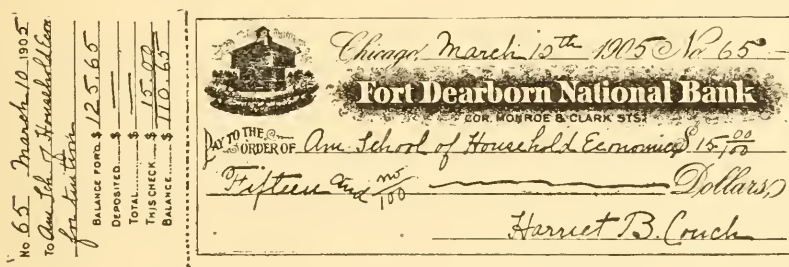 No. 65 March 10 1905
To Am Sch of Household Econ
for tuition
BALANCE FORD. $ 125.65
DEPOSITED $
TOTAL $
THIS CHECK $ 15.00
BALANCE $ 110.65
Chicago, March 10th 1905 No 65
Fort Dearborn National Bank
COR. MONROE & CLARK STS.
PAY TO THE ORDER OF Am. School of Household Economics $ 15 00/100
Fifteen and no/100 Dollars,
Harriet B. Couch